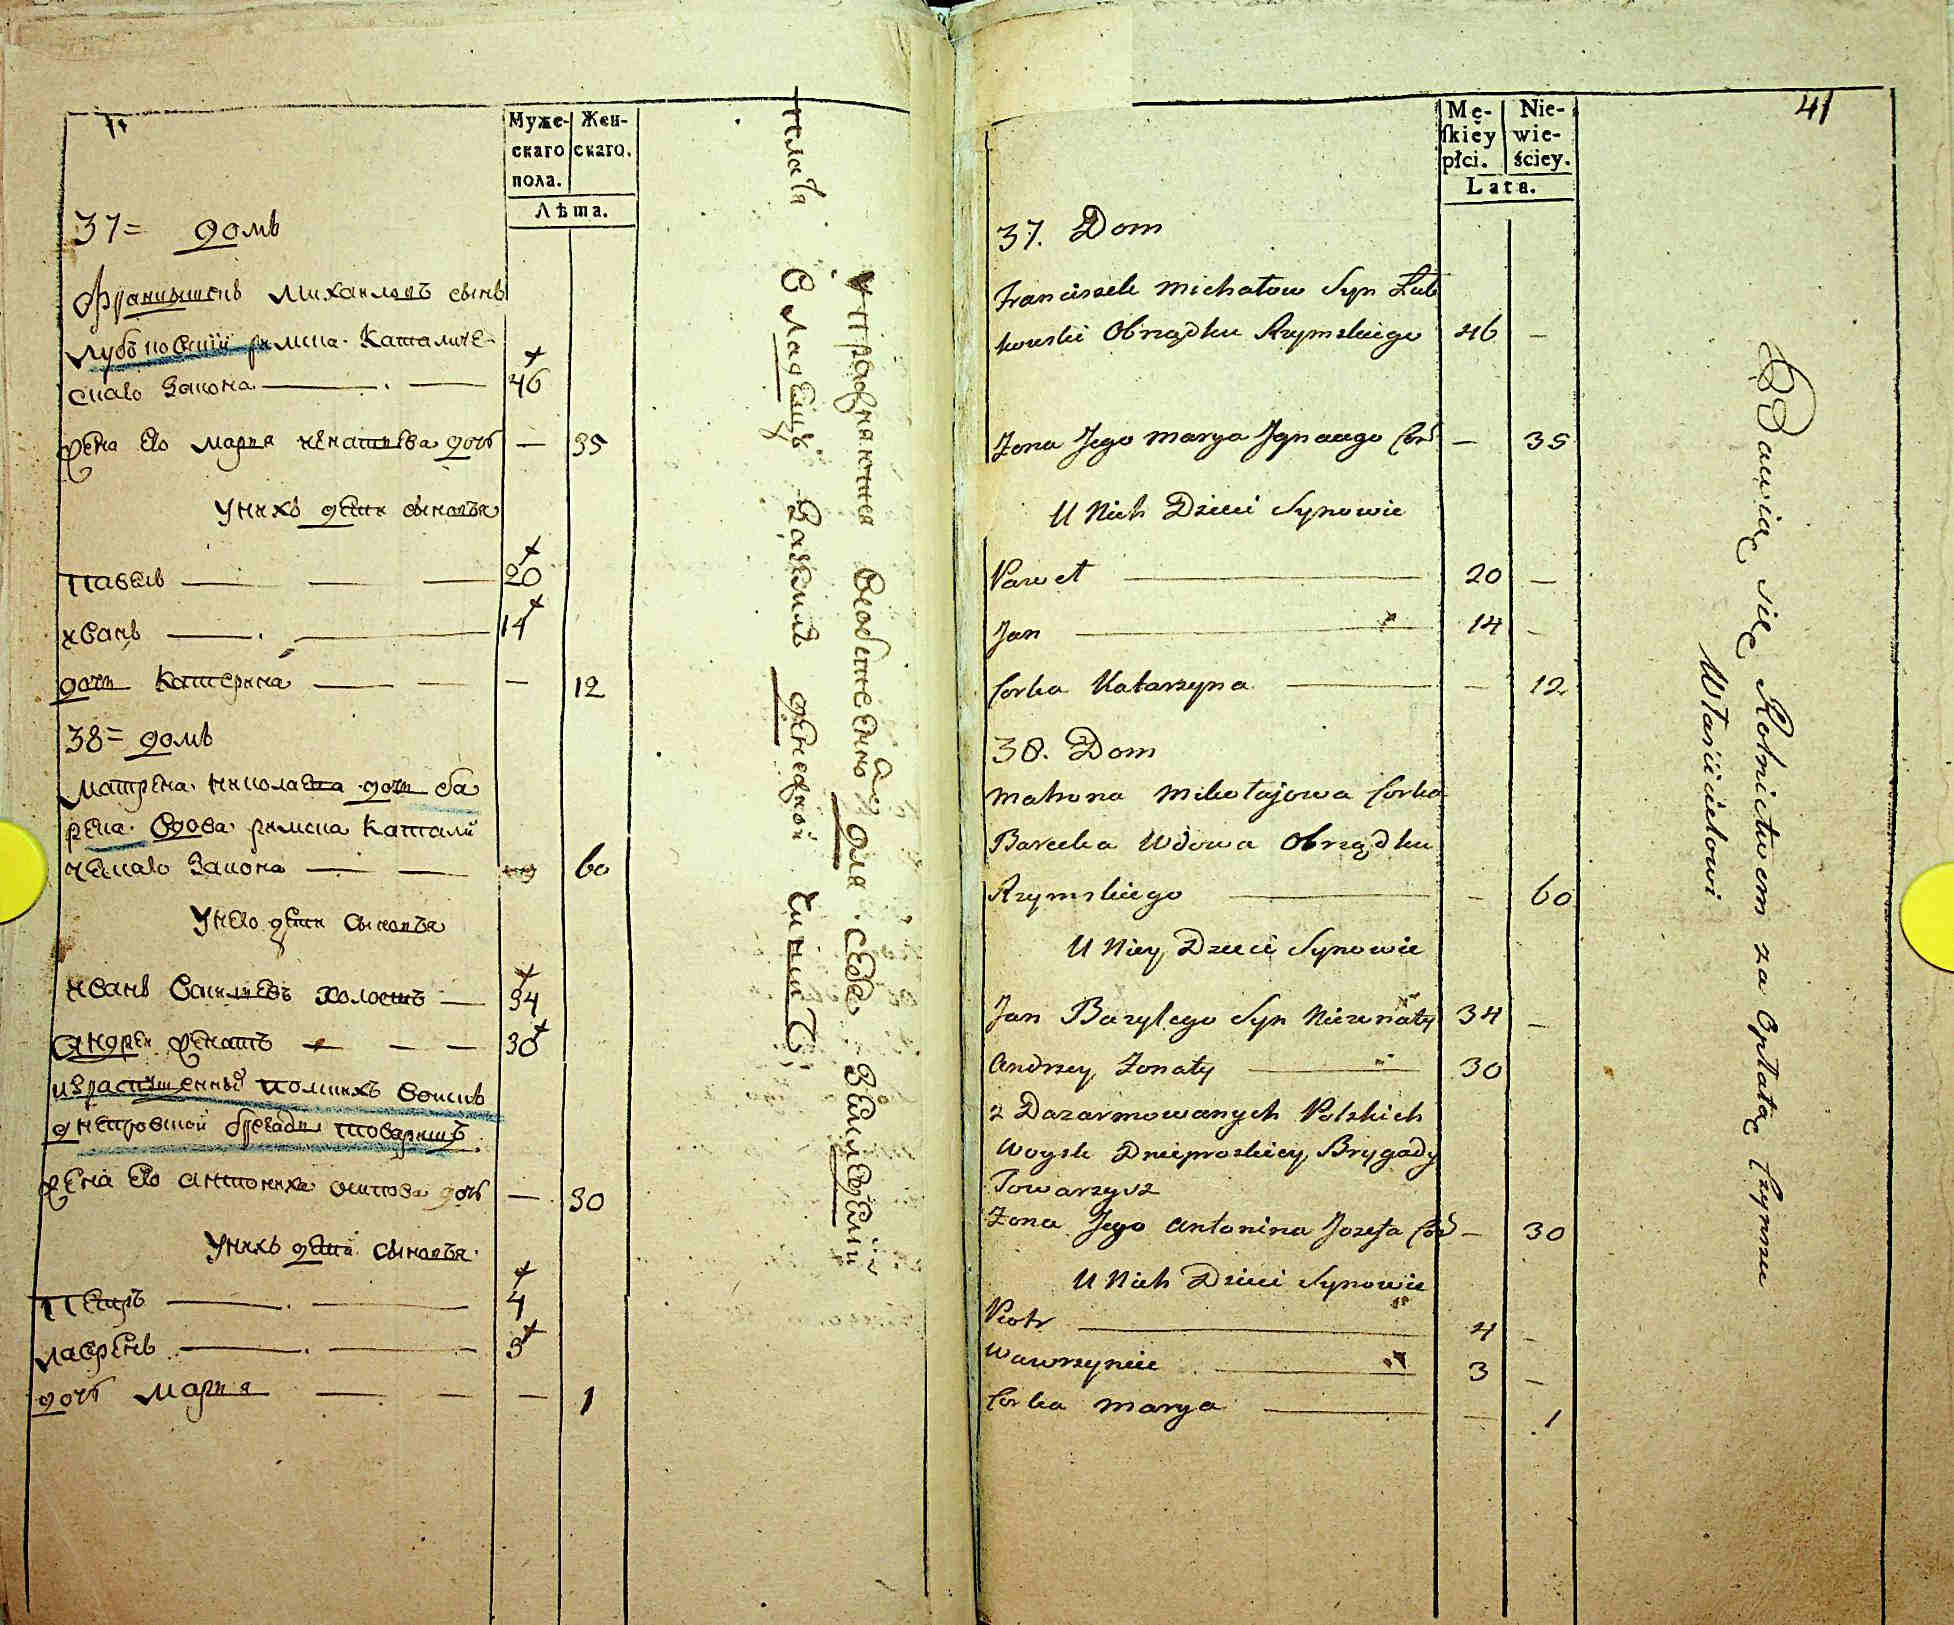 Муже-
скаго
пола.
Жен-
скаго.
Лѣта.
37= домъ
Францышекъ Михаиловъ сынъ
Лубковский римска Католиче-
скаго Закона
46
жена Его Мария игнатьева дочь — 35
У нихъ дети сыновья
Павелъ 20
Иванъ 14
дочь Катерина — 12
38= домъ
Матрена николаева дочь ба
река вдова римска Католи
ческаго Закона 60
У нею дети сыновья
Иванъ Василиевъ холостъ — 34
Андреи женатъ — 30
израспущенныхъ полскихъ воискъ
днепровской брегады товарищъ
жена Его антониха осипова дочь — 30
У нихъ дети сыновья
Петръ 4
лаврень 3
дочь Мария — 1
упражняются собственно для себя Земледелии
а
плата Владельцу Заземлю денежной Чиншъ
41
Mę-
skiey
płci.
Nie-
wie-
ściey.
Lata.
37. Dom
Franciszek Michałow Syn Łub
kowski Obrządku Rzymskiego 46 —
Żona Jego Marya Jgnacego Cor — 35
U Nich Dzieci Synowie
Paweł 20 —
Jan 14 —
Corka Katarzyna — 12
38. Dom
Matrona Mikołajowa Corka
Barecka Wdowa Obrządku
Rzymskiego — 60
U Niey Dzieci Synowie
Jan Bazylego Syn Nieżonaty 34 —
Andrzey Żonaty 30
z Dazarmowanych Polskich
Woysk Dnieproskiey Brygady
Towarzysz
Żona Jego Antonina Jozefa Cor — 30
U Nich Dzieci Synowie
Piotr 4 —
Wawrzyniec 3 —
Corka Marya — 1
Bawiąc się Rolnictwem za Opłatą Czynszu
Właścicielowi